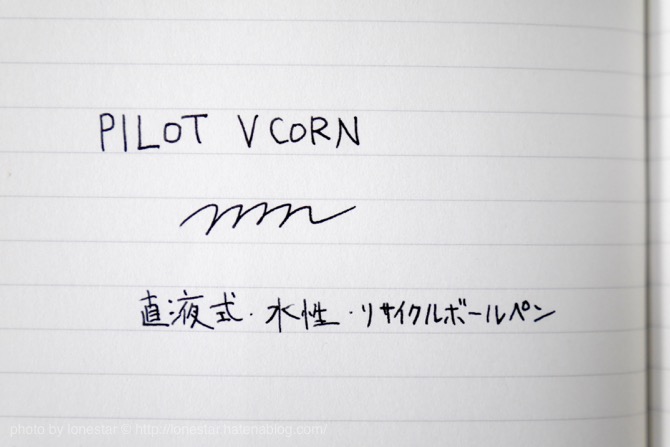 PILOT V CORN
直液式・水性・リサイクルボールペン
photo by lonestar © http://lonestar.hatenablog.com/